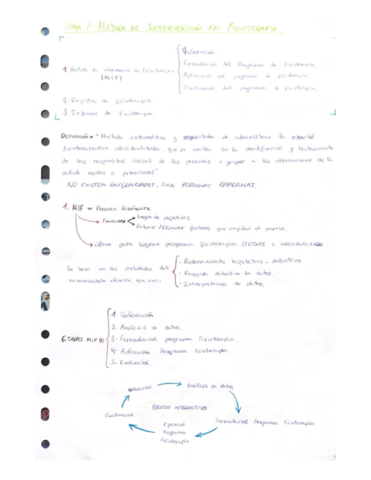 TEMA 7 MÉTODO DE INTERVENCIÓN EN FISIOTERAPIA
Valoración.
Formulación del Programa de Fisioterapia.
1 Método de intervención en Fisioterapia
(MIF)
Aplicación del programa de fisioterapia.
Evaluación del programa de fisioterapia.
2. Registro de fisioterapia.
3. Informe de Fisioterapia.
Definición "Método sistemático y organizado de administrar la atención
fisioterapéutica individualizada, que se centra en la identificación y tratamiento
de las respuestas únicas de las personas o grupos a las alteraciones de la
salud reales o potenciales"
NO EXISTEN ENFERMEDADES, SINO PERSONAS ENFERMAS.
1. MIF = Proceso dinámico.
Funciones
Logro de objetivos
Evaluar factores que impiden el proceso.
para lograr programa fisioterapia
Se basa en las
- Razonamiento hipotético - deductivo
- Recogida de datos.
- Interpretación de datos
ETAPAS MIF
1. Valoración
2. Análisis de datos
3. Formulación programa fisioterapia
4. Aplicación Programa fisioterapia
5. Evaluación.
Valoración
Análisis de datos
PROCESO
Evaluación
Formulación Programa Fisioterapia
Ejecución
Programa
Fisioterapia